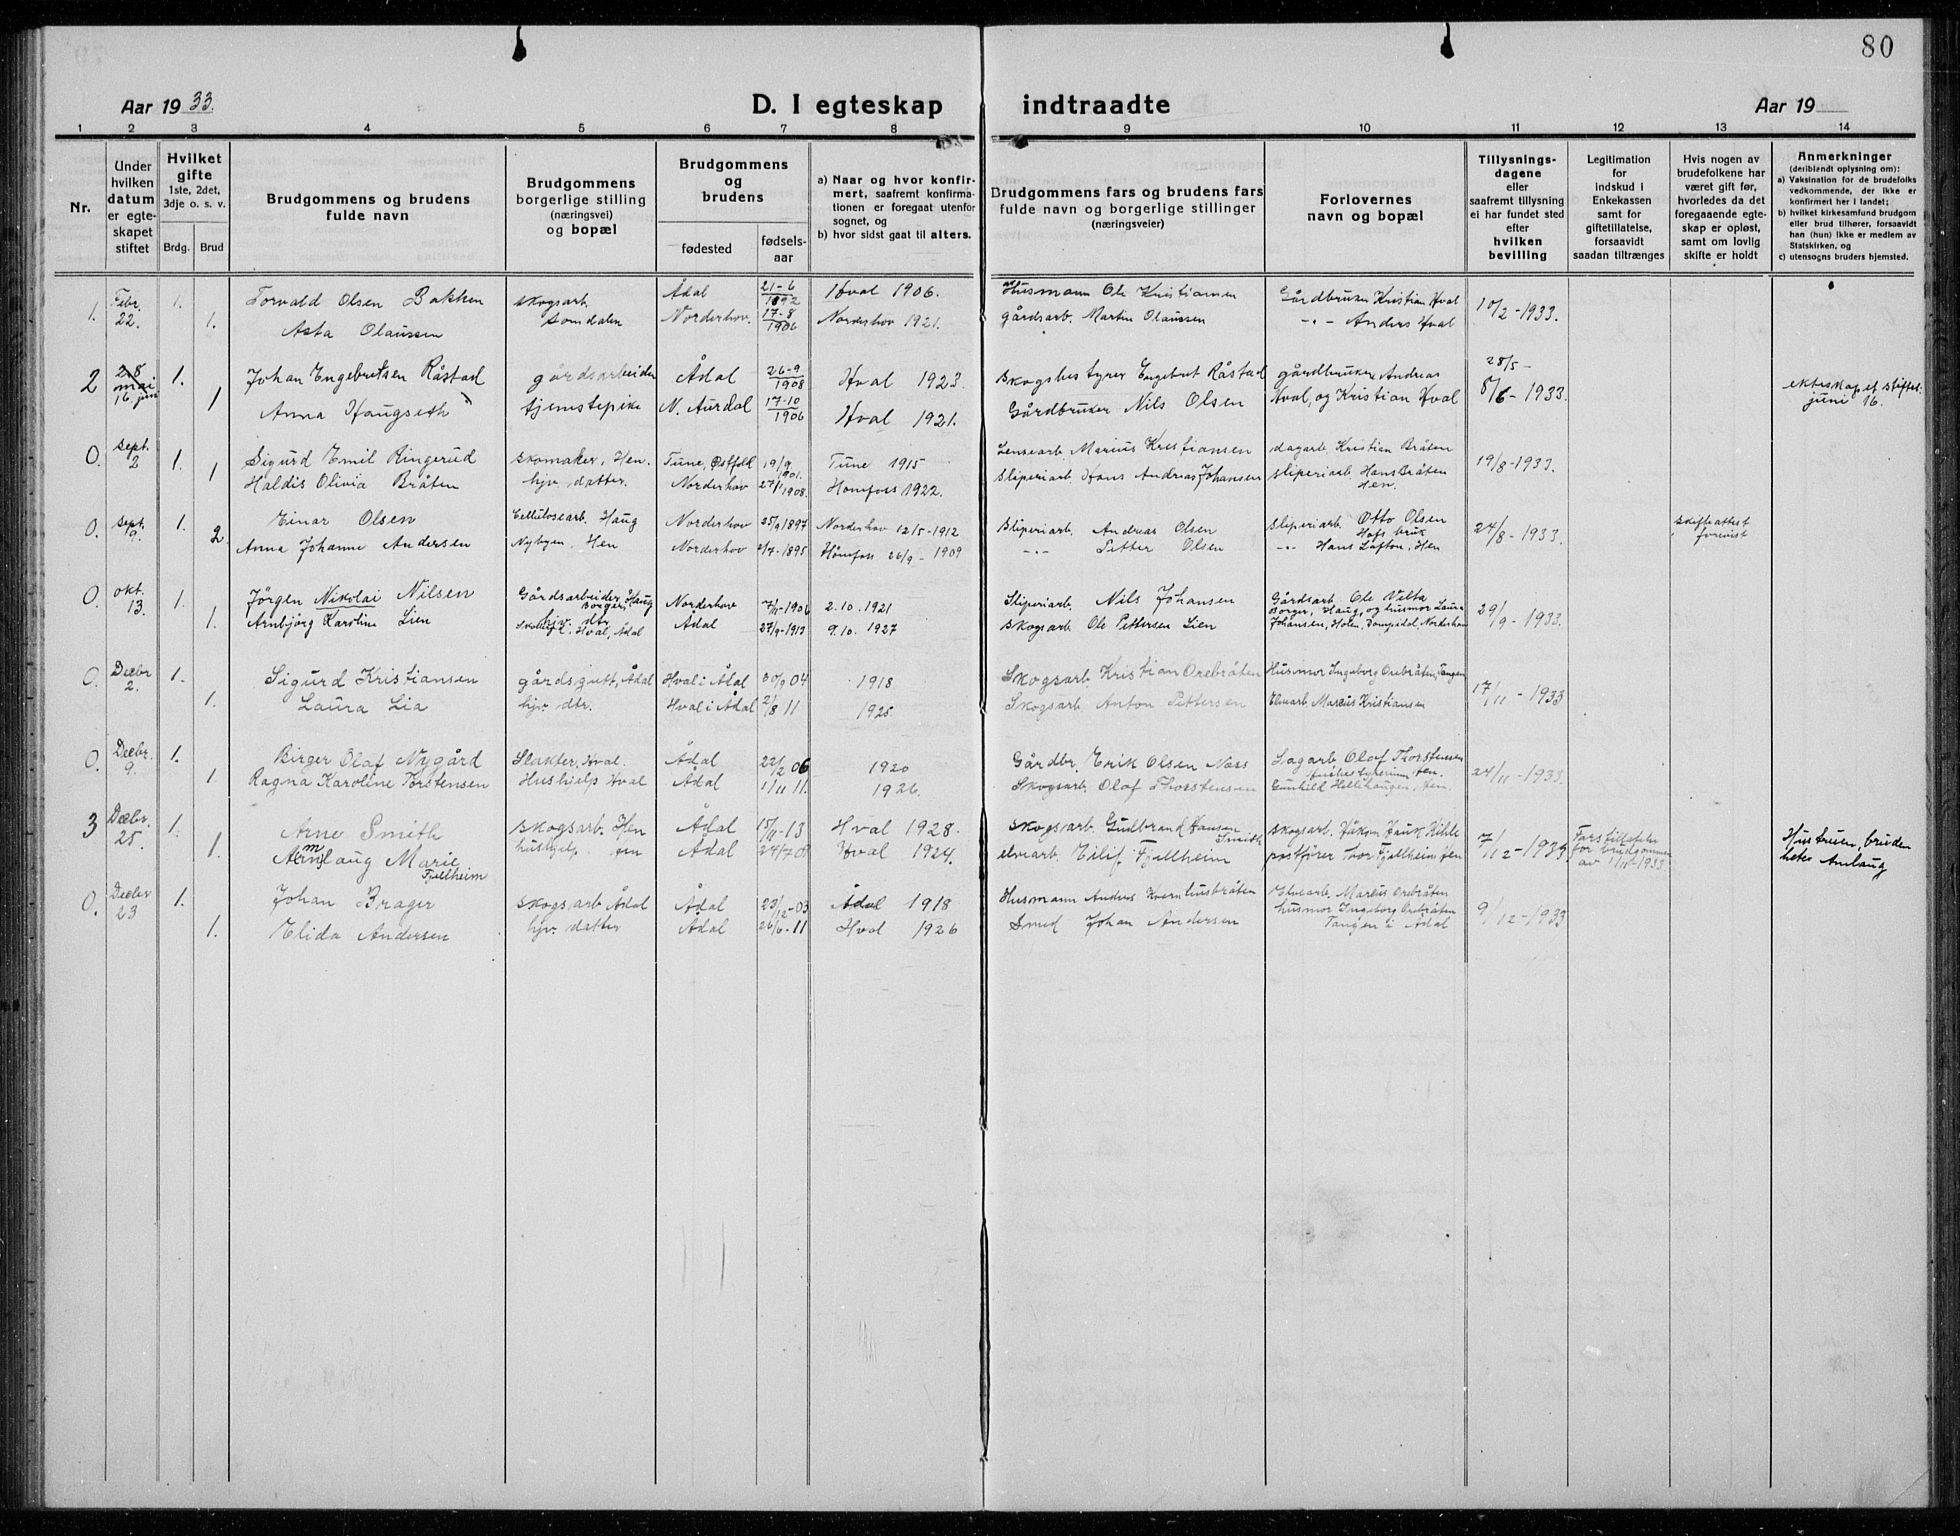 80
Aar 19 33.
D. I egteskap
indtraadte
Aar 19
1 2 3 4 5 6 7 8 9 10 11 12 13 14
Nr.
Under hvilken datum er egteskapet stiftet
Hvilket gifte 1ste, 2det, 3dje o. s. v.
Brdg. Brud
Brudgommens og brudens fulde navn
Brudgommens borgerlige stilling (næringsvei) og bopæl
Brudgommens og brudens
fødested
fødsels-aar
a) Naar og hvor konfirmert, saafremt konfirmationen er foregaat utenfor sognet, og
b) hvor sidst gaat til alters.
Brudgommens fars og brudens fars fulde navn og borgerlige stillinger (næringsveier)
Forlovernes navn og bopæl
Tillysningsdagene eller saafremt tillysning ei har fundet sted efter hvilken bevilling
Legitimation for indskud i Enkekassen samt for giftetillatelse, forsaavidt saadan tiltrænges
Hvis nogen av brudefolkene har været gift før, hvorledes da det foregaaende egteskap er opløst, samt om lovlig skifte er holdt
Anmerkninger (deriblandt oplysning om):
a) Vaksination for de brudefolks vedkommende, der ikke er konfirmert her i landet;
b) hvilket kirkesamfund brudgom eller brud tilhører, forsaavidt han (hun) ikke er medlem av Statskirken, og
c) utensogns bruders hjemsted.
1. Febr. 22. 1. Torvald Olsen Bakken skogsarb. Ådal 21-6 1892 Hval 1906. Husmann Ole Kristiansen Gårdbruker Kristian Hval 10/2-1933.
1. Asta Olaussen Somdalen Norderhov. 17-8 1906 Norderhov 1921. gårdsarb. Martin Olaussen -"- Anders Hval
2 28 mai 16 juni 1. Johan Engebretsen Råstad gårdsarbeider Ådal 26-9 1908 Hval 1923. Skogsbestyrer Engebret Råstad gårdbruker Andreas 28/5-
1 Anna Haugseth tjenstepike N. Aurdal 17-10 1906 Hval 1921. Gårdbruker Nils Olsen Hval, og Kristian Hval 8/6-1933. ekteskapet stiftet juni 16.
0. Sept. 2 1. Sigurd Emil Ringerud skomaker, Hen. Tune, Østfold 19/9 1901. Tune 1915 Lensearb. Marius Kristiansen dagarb. Kristian Bråten 19/8-1933.
1 Haldis Olivia Bråten hjv. datter. Norderhov 27/1 1908. Hønefoss 1922. Sliperiarb. Hans Andreas Johansen sliperiarb. Hans Bråten Hen.
0. Sept. 9. 1. Einar Olsen Cellulosearb. Haug Norderhov 25/9 1897 Norderhov 12/5-1912 Sliperiarb. Andreas Olsen Sliperiarb. Otto Olsen Hofs bruk 24/8-1933. Skifteattest forevist
2. Anna Johanne Andersen Nybyen, Hen Norderhov 2/7-1895 Hønefoss 26/9-1909 -"- Petter Olsen -"- Hans Lofton, Hen
0. okt. 13. 1. Jörgen Nikolai Nilsen Gårdsarbeider, Borger, Haug Norderhov 7/11-1906 2.10.1921 Sliperiarb. Nils Johansen Gårdsarb. Ole Velta 29/9-1933.
1. Arnbjørg Karoline Lien hjv. dtr. Hval, Ådal Ådal 27/9-1913 9.10.1927 Skogsarb. Ole Pettersen Lien Borger, Haug, og husmor Laura Johansen, Holen, Norderhov
0. Decbr 2. 1. Sigurd Kristiansen gårdsgutt, Ådal Hval i Ådal 30/9 04 1918 Skogsarb. Kristian Orebråten Husmor Ingeborg Orebråten, Tangen 17/11-1933
1. Laura Lia hjv. dtr. Hval i Ådal 2/8 11 1925 Skogsarb. Anton Pettersen Elvearb Marcus Kristiansen
0. Decbr. 9. 1. Birger Olaf Nygård Slakter, Hval. Ådal 22/2 06 1920 Gårdbr. Erik Olsen Næss Sagarb Olaf Thorstensen Hen. 24/11-1933.
1. Ragna Karoline Torstensen Hushjelp Hval Ådal 1/11 11. 1926. Skogsarb. Olaf Thorstensen Gunhild Hellehaugen, Hen.
3 Decbr. 25. 1. Arne Smith skogsarb. Hen Ådal 15/11-13 Hval 1928. skogsarb. Gudbrand Hansen Smith skogsarb. Håkon Hauk Kihle 7/12-1933 Fars tillatelse for brudgommen av 1/11-1933 Hustruen, bruden heter Amlaug
1. Arnlaug Marie Fjellheim hushjelp Hen Ådal 24/7 08 Hval 1924. elvearb. Eilif Fjellheim postfører Tor Fjellheim Hen
0. Decbr 23 1. Johan Brager skogsarb Ådal Ådal 23/12-03 Ådal 1918 Husmann Andreas Kvernhusbråten Elvearb. Marcus Orebråten 9/12-1933
1. Elida Andersen hjv. datter Ådal 26/6-11 Hval 1926 Smed Johan Andersen husmor Ingeborg Orebråten Tangen i Ådal